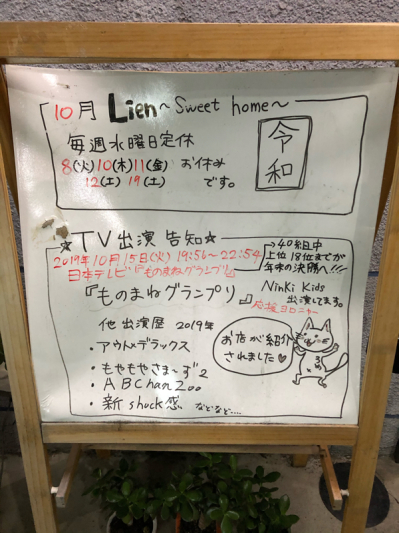 10月 Lien~Sweet home~
毎週水曜日定休
8(火)10(木)11(金) お休み
12(土) 19(土) です。
令和
☆TV出演 告知☆
2019年10月15日(火)19:56~22:54
日本テレビ『ものまねグランプリ』
→40組中
上位18位までが
年末の決勝へ!!!
『ものまねグランプリ』
NinKi Kids
出演してます。
応援ヨロニャー
他出演歴 2019年
・アウト×デラックス
・もやもやさま~ず2
・ABChan Zoo
・新 shock感 などなど....
お店が紹介
されました♡